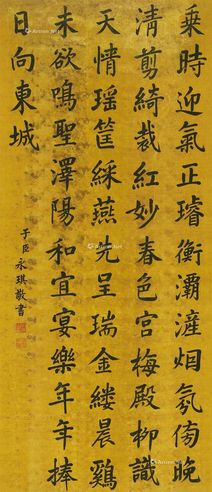 乘時迎氣正璿衡灞滻烟氛傍晚
清剪綺裁紅妙春色宮梅殿柳識
天情瑶筐綵燕先呈瑞金縷晨鷄
未欲鳴聖澤陽和宜宴樂年年捧
日向東城
子臣永琪敬書